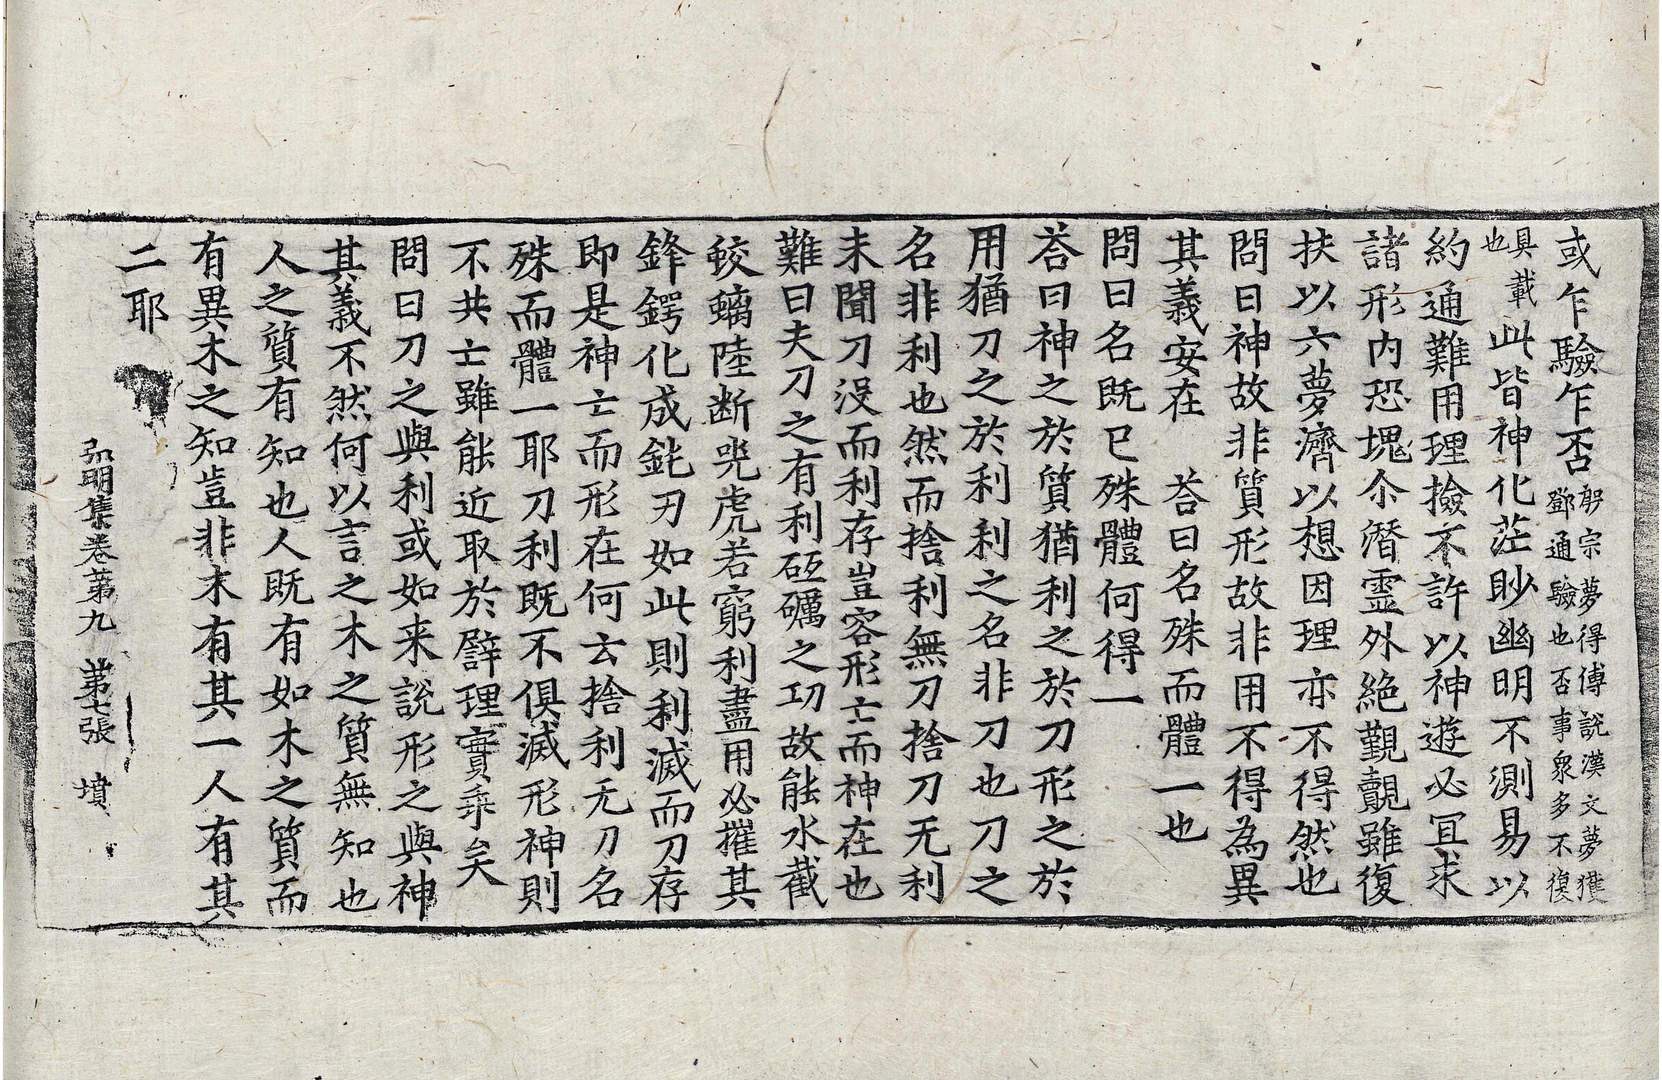 或乍驗乍否殷宗夢得傅說漢文夢獲鄧通驗也否事衆多不復
具載也此皆神化茫眇幽明不測易以
約通難用理撿不許以神遊必冝求
諸形內恐塊尒潛靈外絶覲覿雖復
扶以六夢濟以想因理亦不得然也
問曰神故非質形故非用不得為異
其義安在　荅曰名殊而體一也
問曰名既已殊體何得一
荅曰神之於質猶利之於刀形之於
用猶刀之於利利之名非刀也刀之
名非利也然而捨利無刀捨刀无利
未聞刀沒而利存豈容形亡而神在也
難曰夫刀之有利砥礪之功故能水截
蛟螭陸断兕虎若窮利盡用必摧其
鋒鍔化成鈍刃如此則利滅而刀存
即是神亡而形在何云捨利无刀名
殊而體一耶刀利既不俱滅形神則
不共亡雖能近取於譬理實乖矣
問曰刀之與利或如来説形之與神
其義不然何以言之木之質無知也
人之質有知也人既有如木之質而
有異木之知豈非木有其一人有其
二耶
弘明集卷第九　第七張　墳